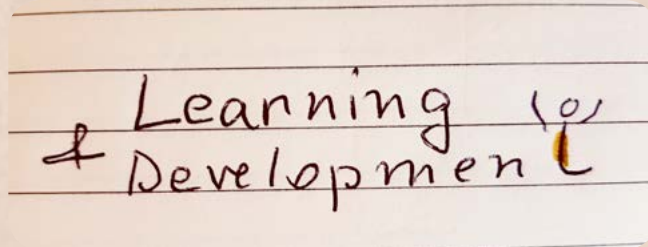 Learning
& Development